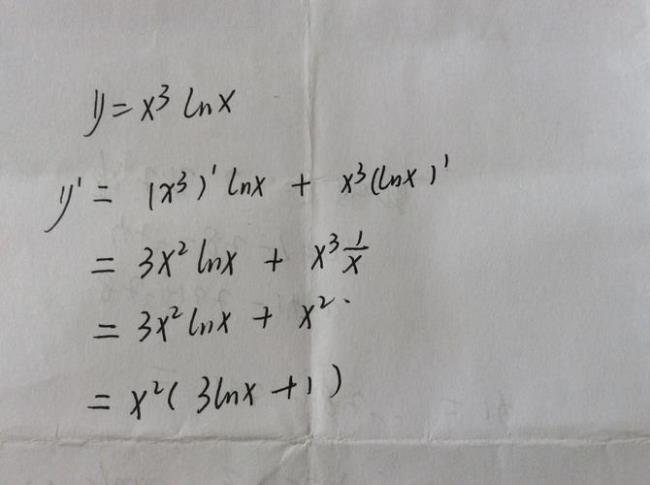 y = x³ lnx
y' = (x³)' lnx + x³(lnx)'
= 3x² lnx + x³ 1/x
= 3x² lnx + x².
= x²( 3lnx + 1 )